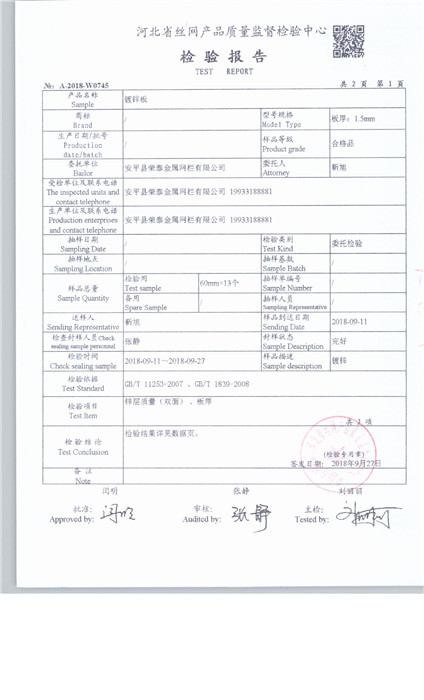 河北省丝网产品质量监督检验中心
检验报告
TEST REPORT
№: A-2018-W0745 共 2 页 第 1 页
产品名称 Sample 镀锌板
商标 Brand / 型号规格 Model Type 板厚: 1.5mm
生产日期/批号 Production date/batch / 样品等级 Product grade 合格品
委托单位 Bailor 安平县荣泰金属网栏有限公司 委托人 Attorney 靳旭
受检单位及联系电话 The inspected units and contact telephone 安平县荣泰金属网栏有限公司 19933188881
生产单位及联系电话 Production enterprises and contact telephone 安平县荣泰金属网栏有限公司 19933188881
抽样日期 Sampling Date / 检验类别 Test Kind 委托检验
抽样地点 Sampling Location / 抽样基数 Sample Batch /
样品总量 Sample Quantity 检验用 Test sample 60mm×13个 抽样单编号 Sample Number /
备用 Spare Sample / 抽样人员 Sampling Representative /
送样人 Sending Representative 靳旭 样品到达日期 Sending Date 2018-09-11
检查封样人员Check sealing sample personnel 张静 封样状态 Sample Description 完好
检验时间 Check sealing sample 2018-09-11—2018-09-27 样品描述 Sample description 镀锌
检验依据 Test Standard GB/T 11253-2007 、GB/T 1839-2008
检验项目 Test Item 锌层质量（双面）、板厚
共 2 项
检验结论 Test Conclusion 检验结果详见数据页。
(检验专用章)
签发日期: 2018年9月27日
备注 Note
闫明 张静 刘丽丽
批准: Approved by: 审核: Audited by: 张静 主检: Tested by: